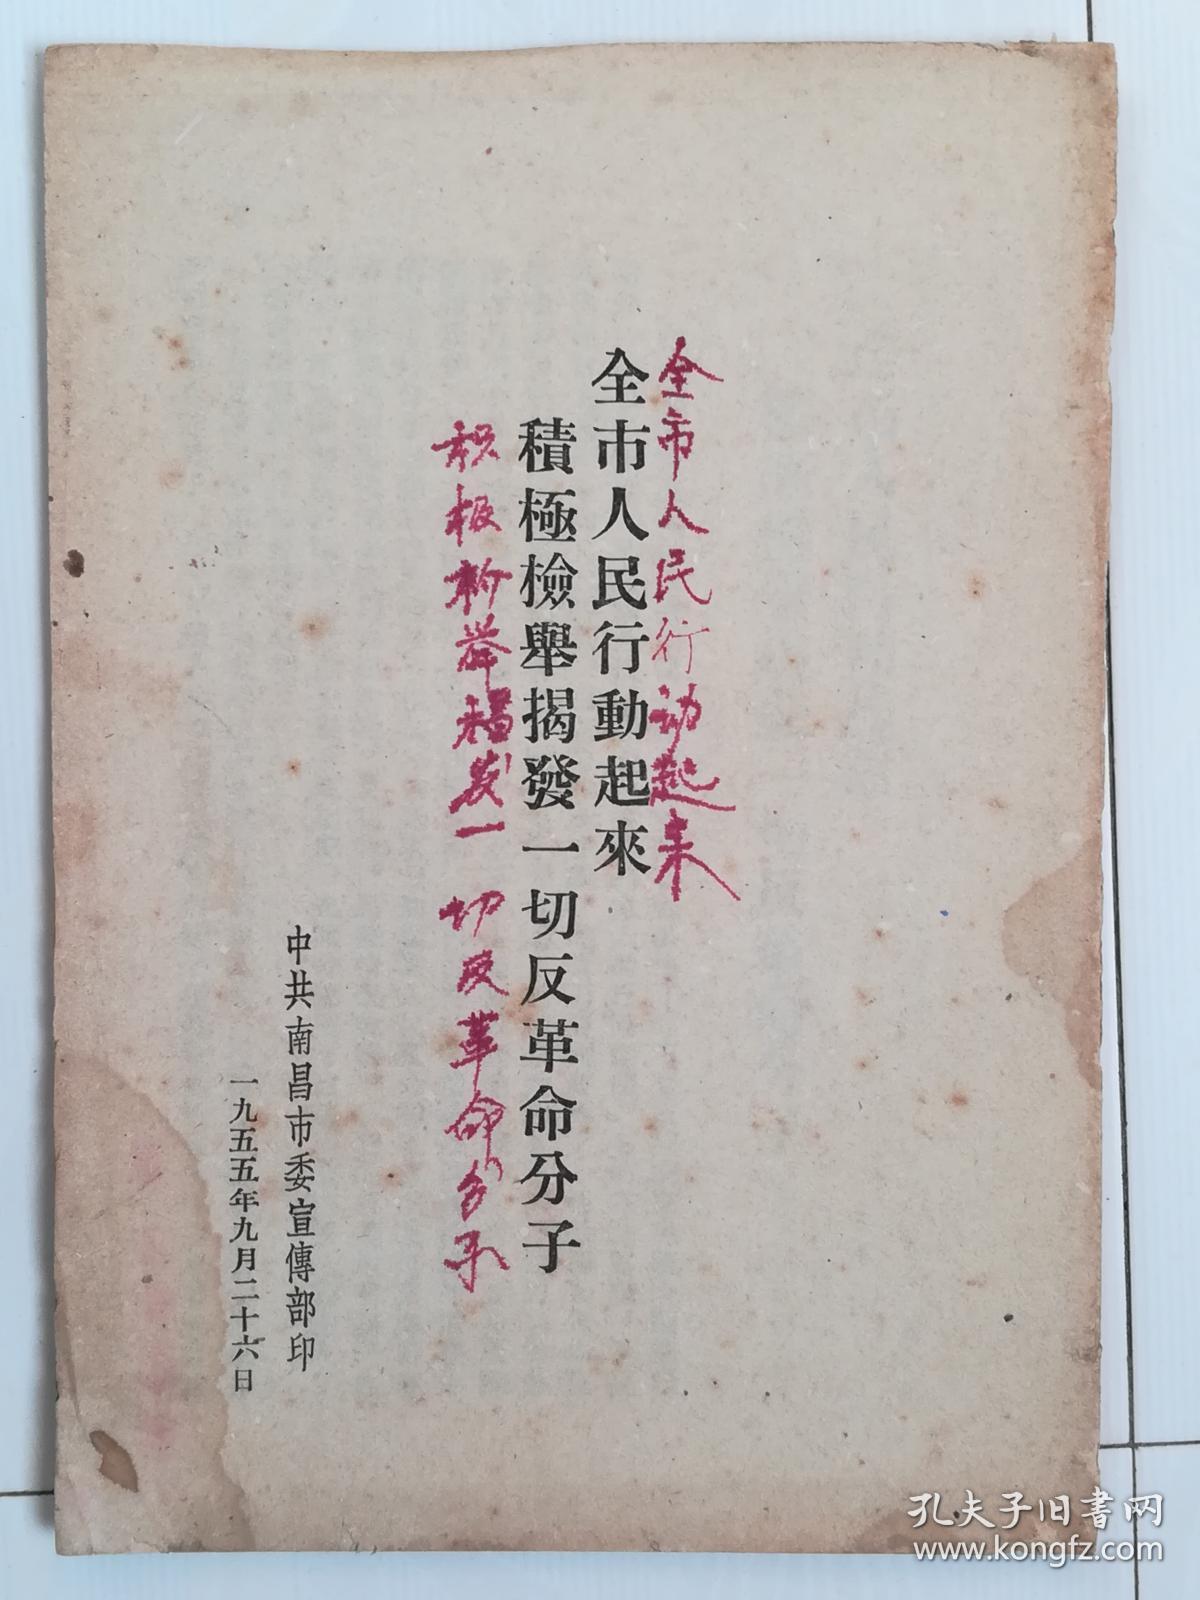 全市人民行动起来
全市人民行動起來
積極檢舉揭發一切反革命分子
积极检举揭发一切反革命分子
中共南昌市委宣傳部印
一九五五年九月二十六日
孔夫子旧书网
www.kongfz.com